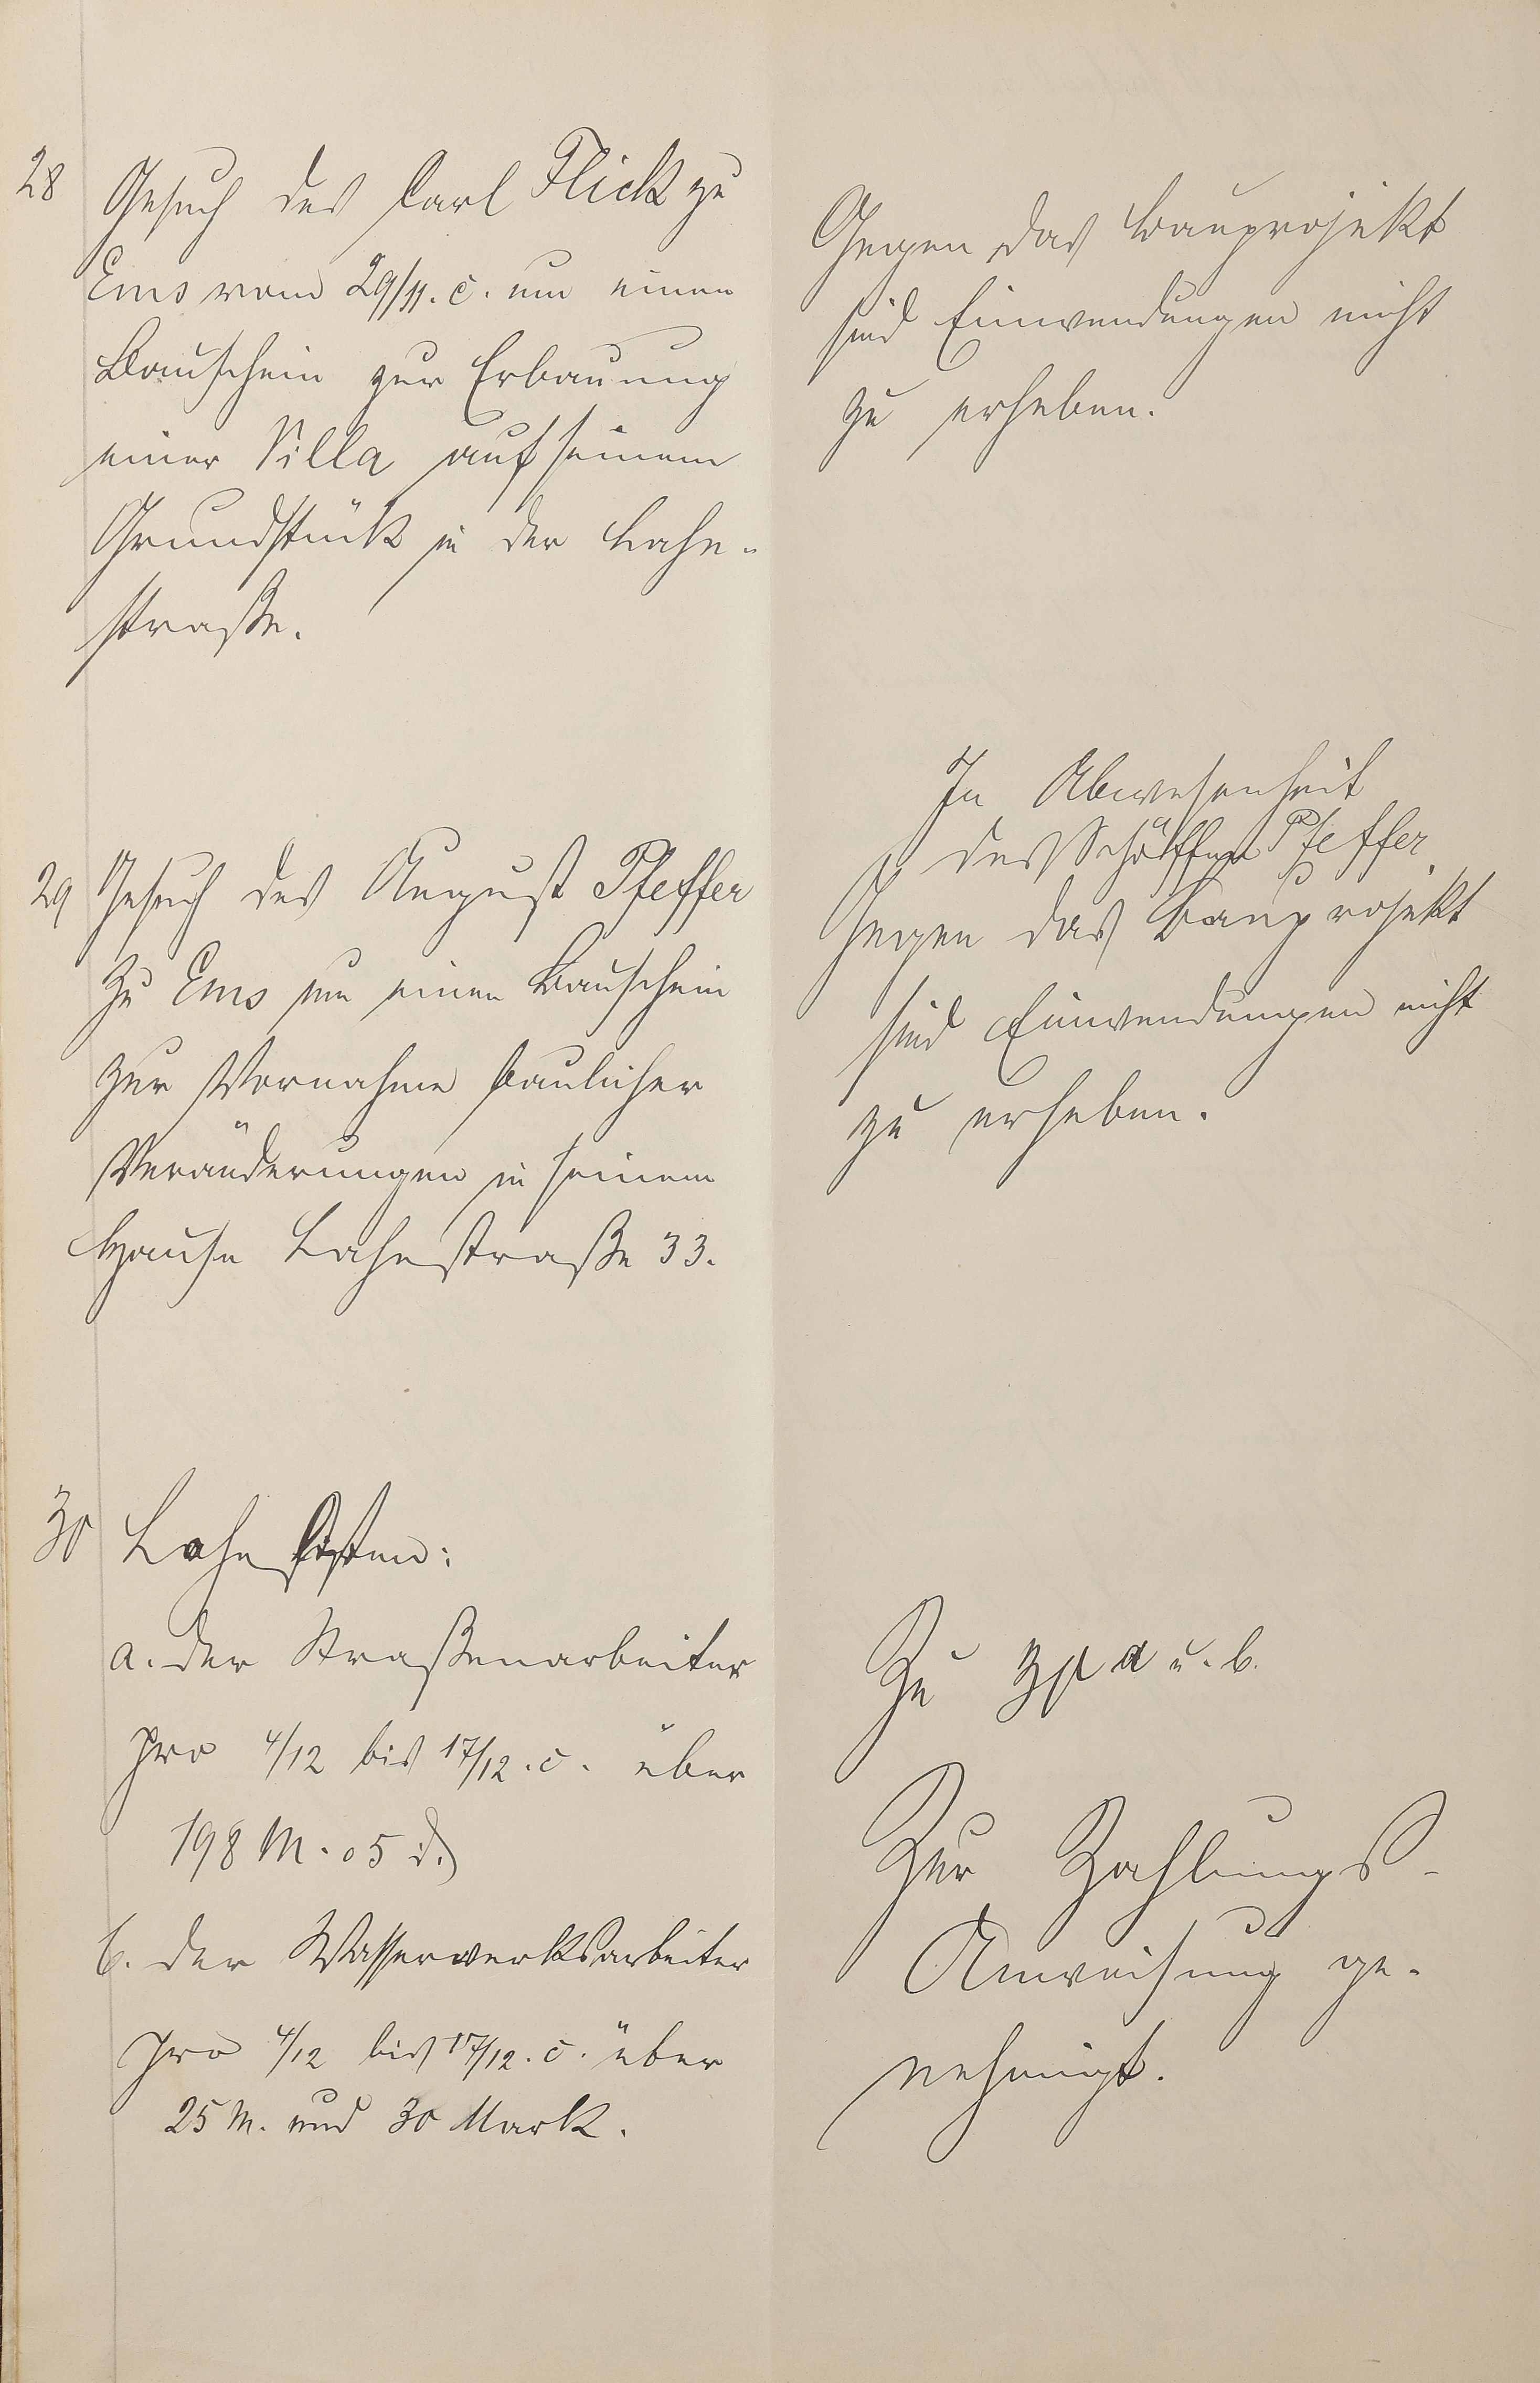 28
Gesuch des Carl Flick zu
Ems vom 29/11. c. um einen
Bauschein zur Erbauung
einer Villa auf seinem
Grundstück in der Lahn-
straße.
Gegen das Bauprojekt
sind Einwendungen nicht
zu erheben.
29
Gesuch des August Pfeffer
zu Ems um einen Bauschein
zur Vornahme baulicher
Veränderungen in seinem
Hause Lahnstraße 33.
In Abwesenheit
des Schöffen Pfeffer
Gegen das Bauprojekt
sind Einwendungen nicht
zu erheben.
30
Lohnlisten:
a. der Straßenarbeiter
pro 4/12 bis 17/12. c. über
198 M. 05 d.
b. der Wasserwerksarbeiter
pro 4/12 bis 17/12. c. über
25 M. und 30 Mark.
Zu a u. b.
Zur Zahlungs-
Anweisung ge-
nehmigt.